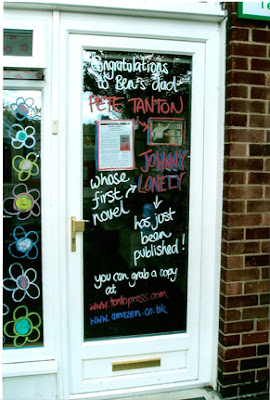 Congratulations
to Ben's dad
PETE TANTON
JOHNNY
LONELY
whose
first
novel
has just
been
published!
you can grab a copy
at
www.tontopress.com
www.amazon.co.uk